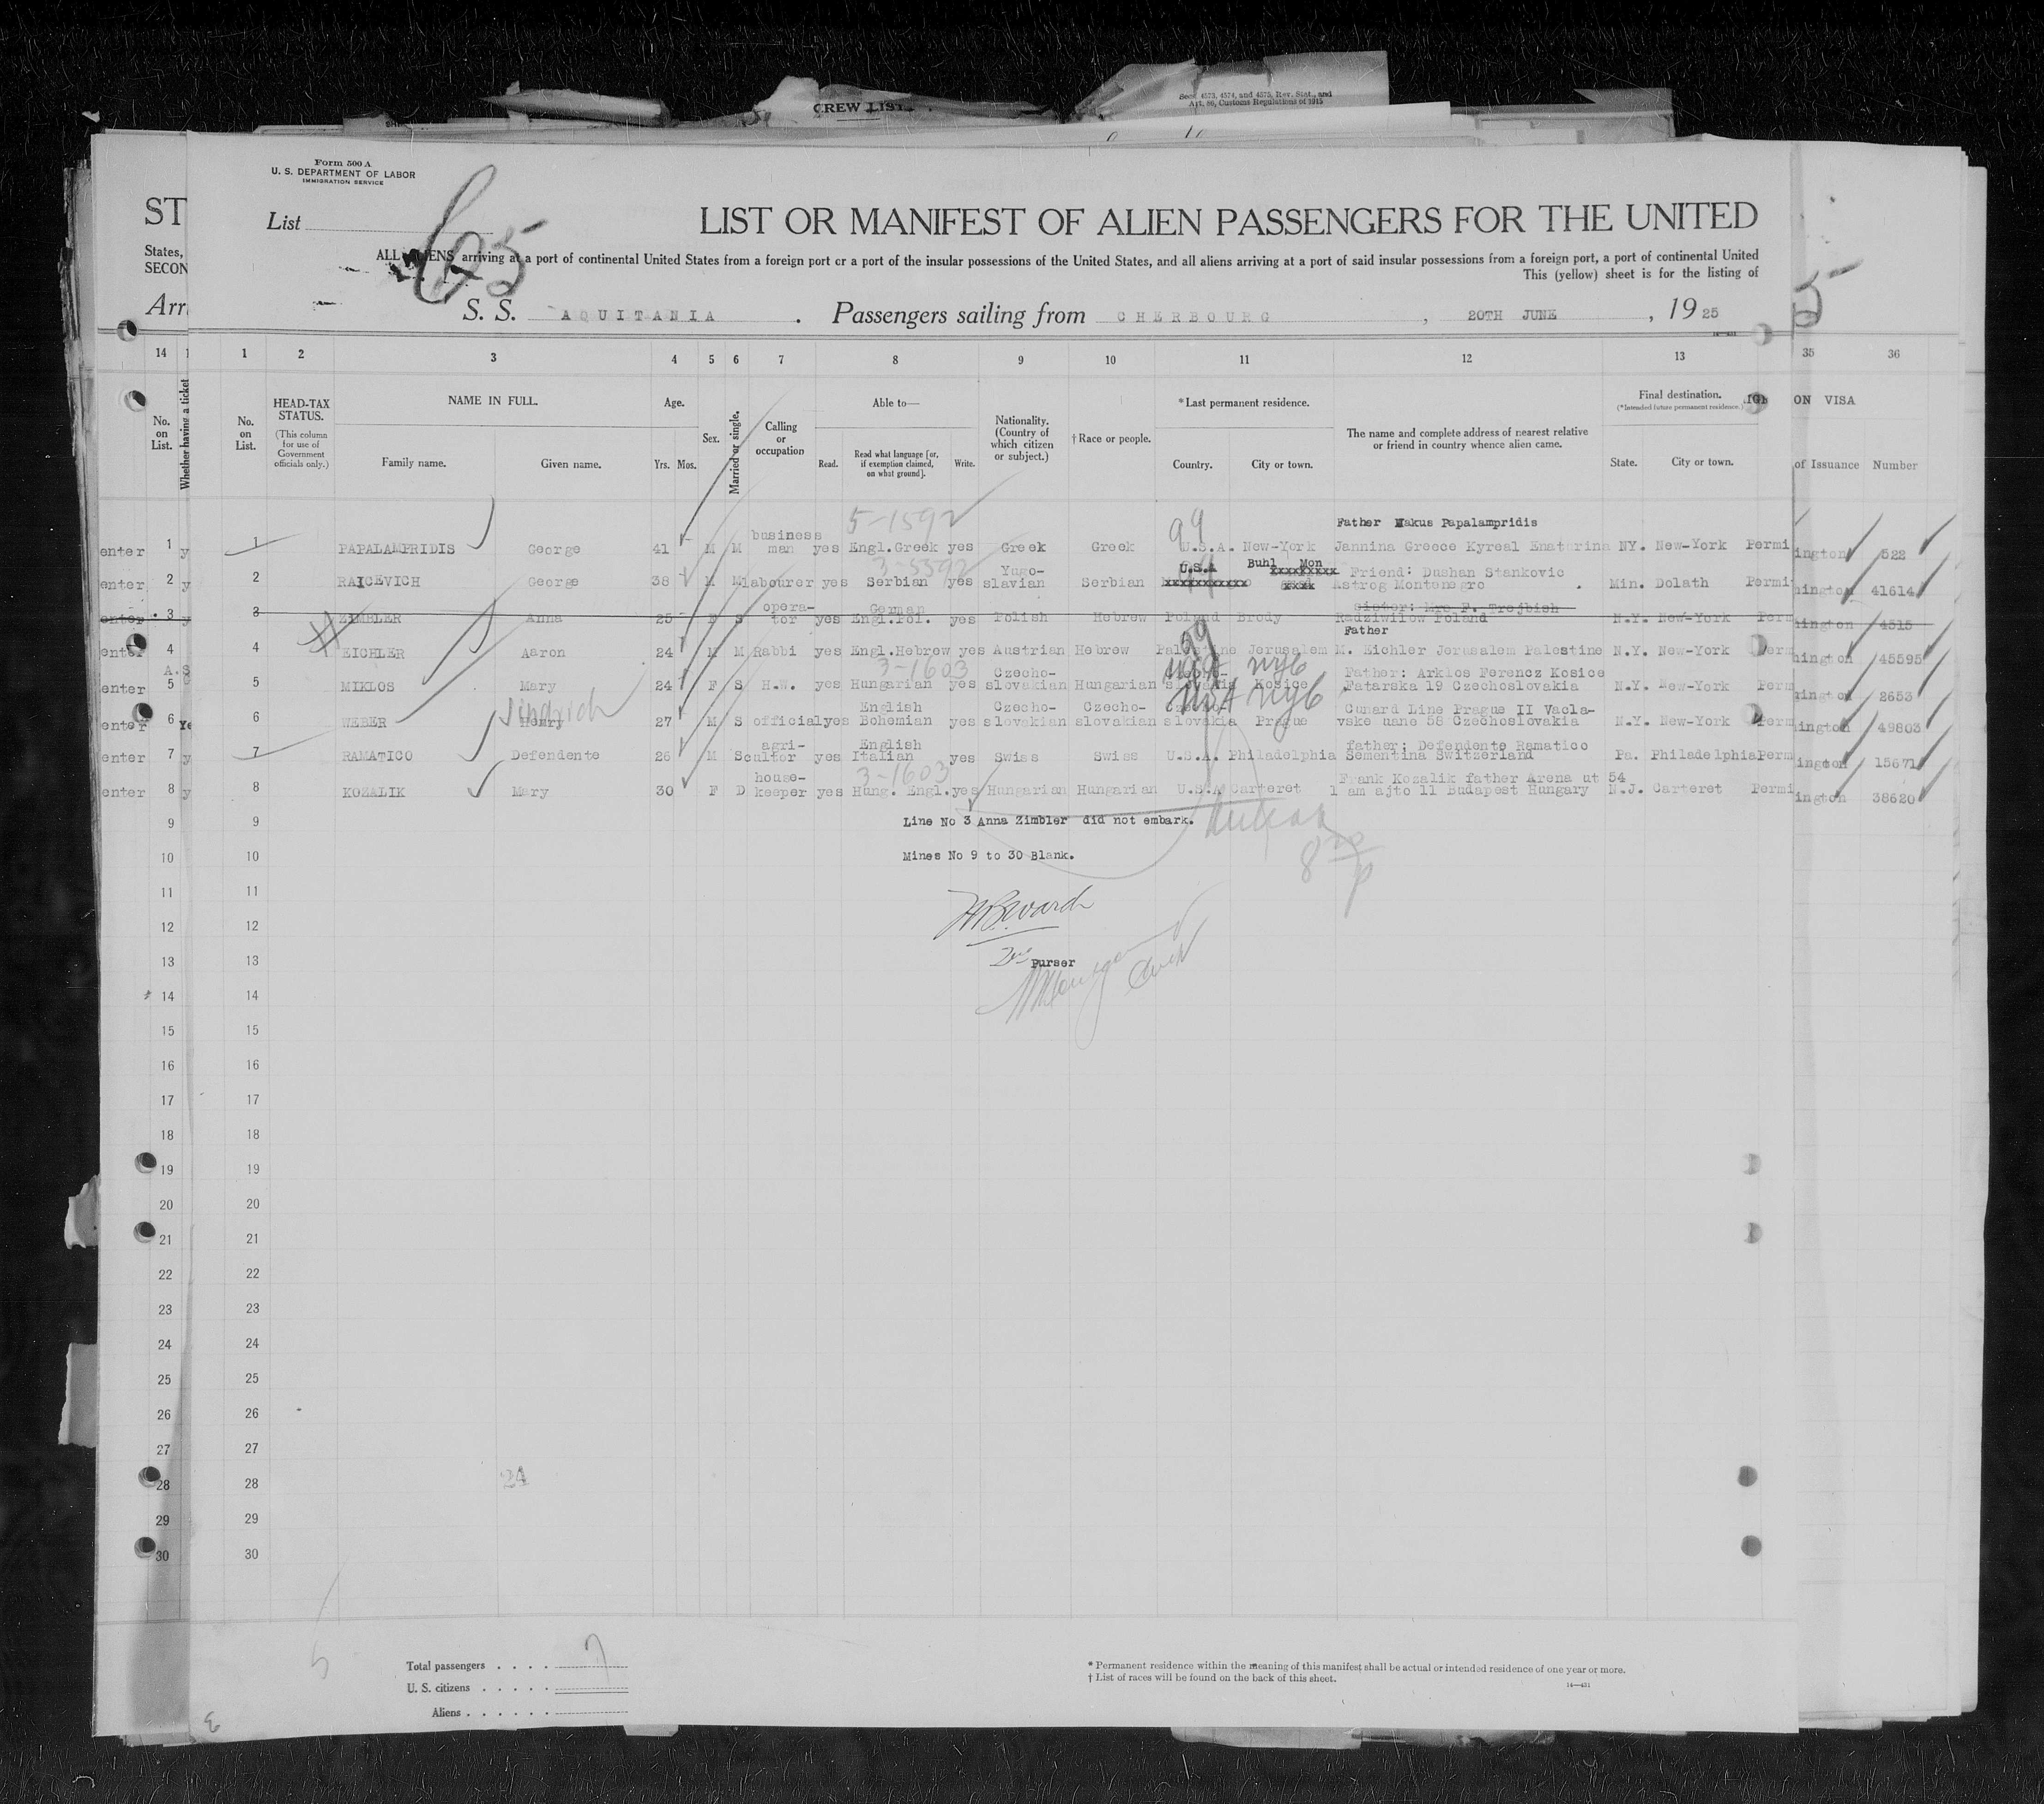 CREW LIST
Secs. 4573, 4574, and 4575, Rev. Stat., and
Art. 89, Customs Regulations of 1915
Form 500 A
U. S. DEPARTMENT OF LABOR
IMMIGRATION SERVICE
List
65
ST
LIST OR MANIFEST OF ALIEN PASSENGERS FOR THE UNITED
States,
ALL ALIENS arriving at a port of continental United States from a foreign port or a port of the insular possessions of the United States, and all aliens arriving at a port of said insular possessions from a foreign port, a port of continental United
SECON
This (yellow) sheet is for the listing of
Arri
S. S. AQUITANIA. Passengers sailing from CHERBOURG, 20TH JUNE, 1925
14 1 2 3 4 5 6 7 8 9 10 11 12 13 35 36
No. on List. Whether having a ticket
No. on List.
HEAD-TAX STATUS. (This column for use of Government officials only.)
NAME IN FULL.
Family name. Given name.
Age. Yrs. Mos.
Sex.
Married or single.
Calling or occupation
Able to—
Read. Read what language [or, if exemption claimed, on what ground]. Write.
Nationality. (Country of which citizen or subject.)
† Race or people.
*Last permanent residence.
Country. City or town.
The name and complete address of nearest relative or friend in country whence alien came.
Final destination. (*Intended future permanent residence.)
State. City or town.
ON VISA
of Issuance Number
5-1592
99
Father Makus Papalampridis
enter 1 y 1 PAPALAMPRIDIS George 41 M M business man yes Engl.Greek yes Greek Greek U.S.A. New-York Jannina Greece Kyreal Enaterina NY. New-York Permi ington 522
3-5592
enter 2 y 2 RAICEVICH George 38 M M labourer yes Serbian yes Yugo-slavian Serbian U.S.A Buhl Mon Friend: Dushan Stankovic Astrog Montenegro Min. Dolath Permi hington 41614
enter 3 y 3 ZIMBLER Anna 25 F S opera-tor yes German Engl.Pol. yes Polish Hebrew Poland Brody Sister: Mrs P. Trejbich Radziwilow Poland N.Y. New-York Perm hington 4515
enter 4 4 EICHLER Aaron 24 M M Rabbi yes Engl.Hebrew yes Austrian Hebrew Palestine Jerusalem Father M. Eichler Jerusalem Palestine N.Y. New-York Perm hington 45595
3-1603
enter 5 5 MIKLOS Mary 24 F S H.W. yes Hungarian yes Czecho-slovakian Hungarian slovakia Kosice Father: Arklos Ferencz Kosice Fatarska 19 Czechoslovakia N.Y. New-York Perm ington 2653
Jindrich
enter 6 Ye 6 WEBER Henry 27 M S official yes English Bohemian yes Czecho-slovakian Czecho-slovakian slovakia Prague Cunard Line Prague II Vacla-vske nane 58 Czechoslovakia N.Y. New-York Perm ington 49803
enter 7 y 7 RAMATICO Defendente 26 M S agri-cultor yes English Italian yes Swiss Swiss U.S.A. Philadelphia father: Defendente Ramatico Sementina Switzerland Pa. Philadelphia Perm ington 15671
3-1603
enter 8 y 8 KOZALIK Mary 30 F D house-keeper yes Hung. Engl. yes Hungarian Hungarian U.S.A Carteret Frank Kozalik father Arena ut 54 1 am ajto 11 Budapest Hungary N.J. Carteret Permi ington 38620
9 9 Line No 3 Anna Zimbler did not embark.
10 10 Mines No 9 to 30 Blank.
11 11
12 12
13 13 Purser
14 14
15 15
16 16
17 17
18 18
19 19
20 20
21 21
22 22
23 23
24 24
25 25
26 26
27 27
28 28
29 29
30 30
Total passengers . . . . 7
U. S. citizens . . . . .
Aliens . . . . . .
* Permanent residence within the meaning of this manifest shall be actual or intended residence of one year or more.
† List of races will be found on the back of this sheet.
14—431